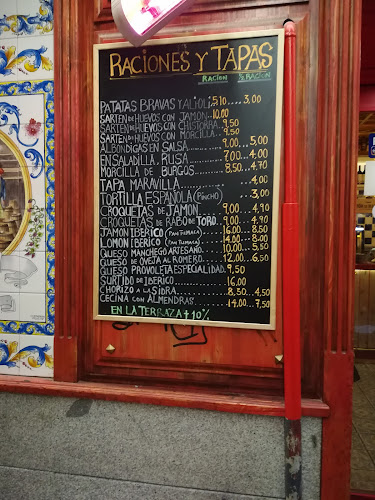 RACIONES Y TAPAS
RACION ½ RACION
PATATAS BRAVAS Y ALIOLI 5,10 ..... 3,00
SARTEN DE HUEVOS CON JAMON 10,00
SARTEN DE HUEVOS CON CHISTORRA 9,50
SARTEN DE HUEVOS CON MORCILLA 9,50
ALBONDIGAS EN SALSA ..... 9,00 ... 5,00
ENSALADILLA RUSA ..... 7,00 ... 4,00
MORCILLA DE BURGOS ..... 8,50 .. 4,70
TAPA MARAVILLA ..... 4,00
TORTILLA ESPAÑOLA (PINCHO) ... 3,00
CROQUETAS DE JAMON ..... 9,00 ... 4,90
CROQUETAS DE RABO DE TORO. 9,00 ... 4,90
JAMON IBERICO (PAN TUMACA) ..... 16,00 .. 8,50
LOMO IBERICO (PAN TUMACA) ..... 14,00 .. 8,00
QUESO MANCHEGO ARTESANO ..... 10,00 ... 5,50
QUESO DE OVEJA AL ROMERO ..... 12,00 ... 6,50
QUESO PROVOLETA ESPECIALIDAD. 9,50
SURTIDO DE IBERICO ..... 16,00
CHORIZO A LA SIDRA ..... 8,30 ... 4,50
CECINA CON ALMENDRAS ..... 14,00 .. 7,50
EN LA TERRAZA + 10%